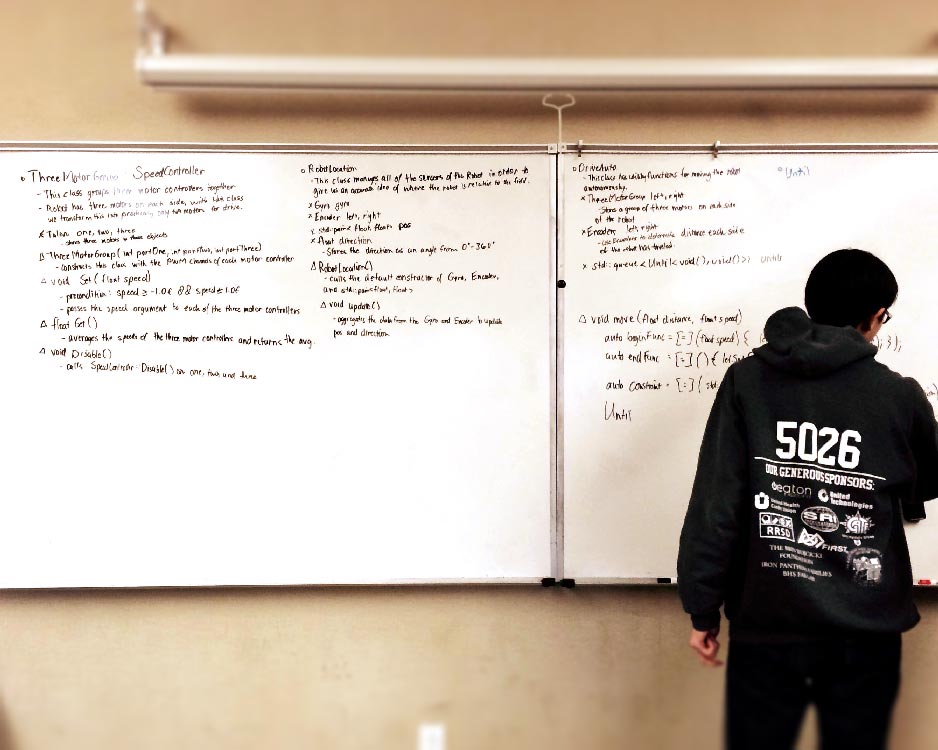 ThreeMotorGroup : SpeedController
- This class groups three motor controllers together
- Robot has three motors on each side, with this class
we transform this into practically only two motors for drive.
x Talon one, two, three
- stores three motors in these objects
Δ ThreeMotorGroup( int portOne, int portTwo, int portThree)
- constructs this class with the PWM channels of each motor controller
Δ void Set( float speed)
- precondition: speed ≥ -1.0f && speed ≤ 1.0f
- passes the speed argument to each of the three motor controllers
Δ float Get()
- averages the speeds of the three motor controllers and returns the avg.
Δ void Disable()
- calls SpeedController::Disable() on one, two and three
RobotLocation
- This class manages all of the sensors of the Robot in order to
give us an accurate idea of where the robot is relative to the field.
x Gyro gyro
x Encoder left, right
x std::pair< float, float> pos
x float direction
- Stores the direction as an angle from 0°-360°
Δ RobotLocation()
- calls the default constructor of Gyro, Encoder,
and std::pair<float, float>
Δ void update()
- aggregates the data from the Gyro and Encoder to update
pos and direction
DriveAuto
- This class has utility functions for moving the robot
autonomously.
x ThreeMotorGroup left, right
- Stores a group of three motors on each side
of the robot
x Encoder left, right
- Use Encoder to determine distance each side
of the robot has traveled.
x std::queue < Until< void(), void()>> until
Δ void move (float distance, float speed)
auto beginFunc = [=](float speed) { }; );
auto endFunc = [=]() {
auto constraint = [=] ( std
Until
Until
5026
OUR GENEROUS SPONSORS:
eaton
United Technologies
United Health
SRI
RRSD
FIRST
THE
FOUNDATION
IRON PANTHER FAMILIES
BHS